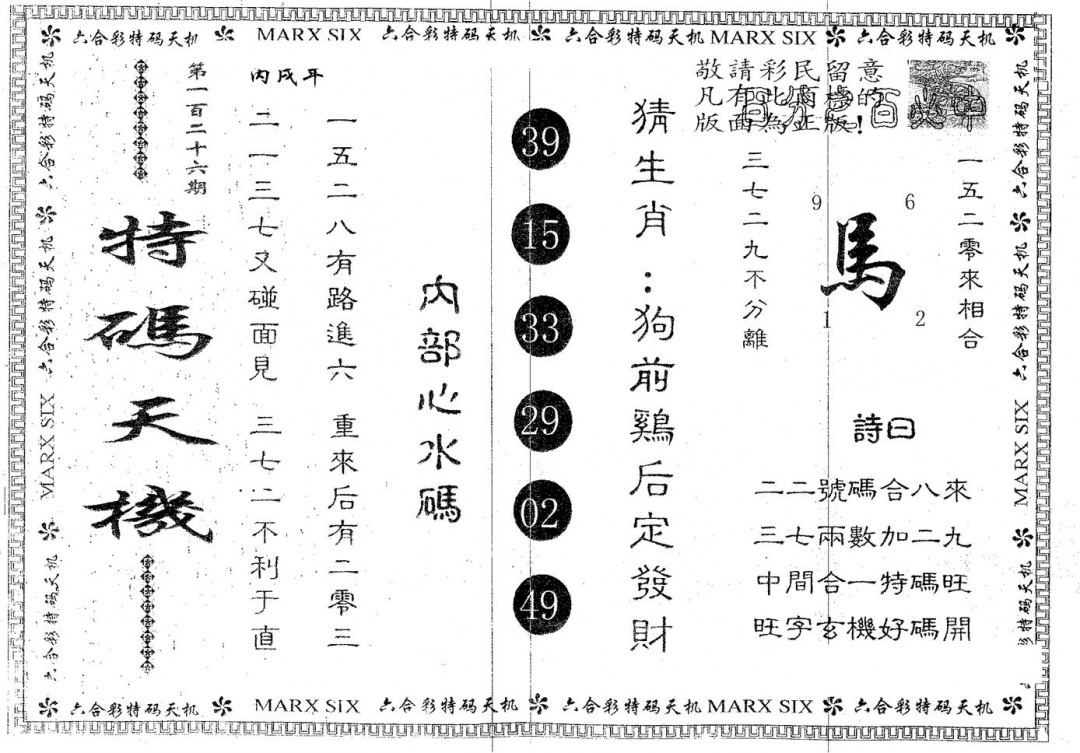 六合彩特码天机 MARX SIX 六合彩特码天机 六合彩特码天机 MARX SIX 六合彩特码天机
敬請彩民留意
版面為正版!
一五二零來相合
馬
9
6
1
2
三七二九不分離
詩曰
二二號碼合八來
三七兩數加二九
中間合一特碼旺
旺字玄機好碼開
猜生肖:狗前鷄后定發財
39
15
33
29
02
49
內部心水碼
一五二八有路進六 重來后有二零三
二一三七又碰面見 三七二不利于直
丙戌年
第一百二十六期
特碼天機
六合彩特码天机
六合彩特码天机
MARX SIX
六合彩特码天机
六合彩特码天机
六合彩特码天机
六合彩特码天机
MARX SIX
六合彩特码天机 MARX SIX 六合彩特码天机 六合彩特码天机 MARX SIX 六合彩特码天机